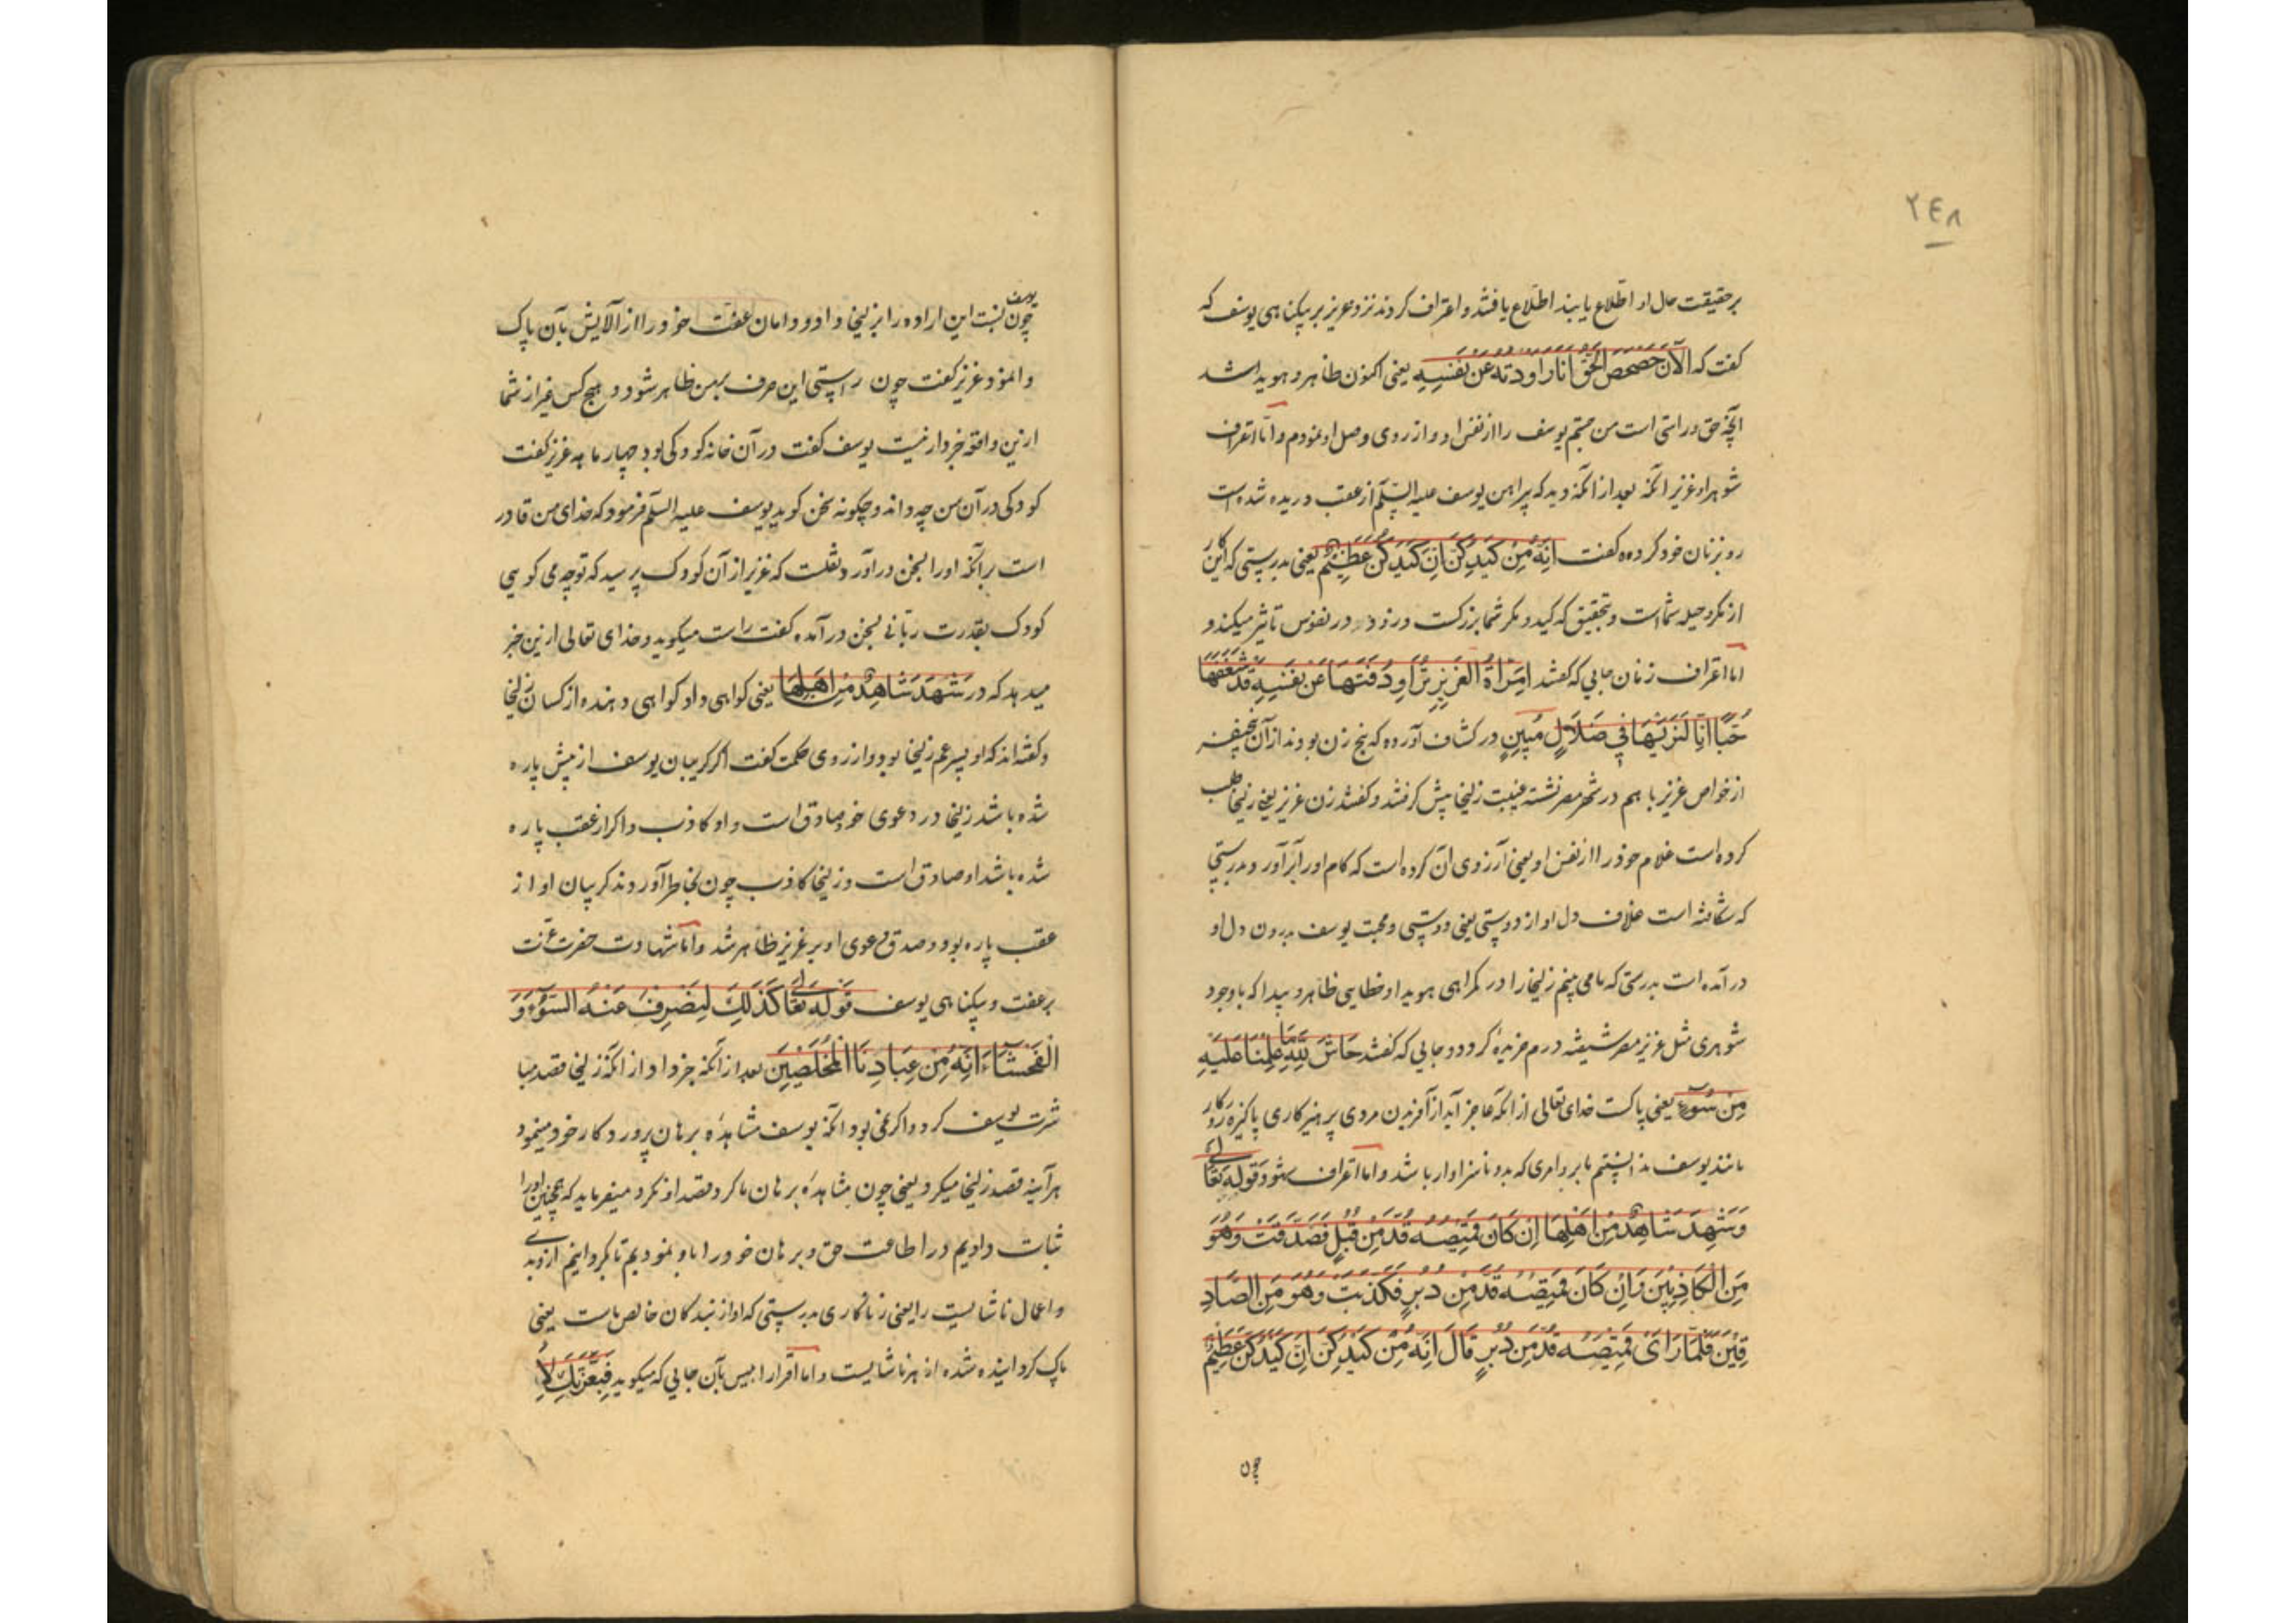 ٢٤٨
بر حقیقت حال او اطلاع یابند اطلاع یافتند و اعتراف کردند نزد عزیز بر بیکناهی یوسف که
کفت که الآن حصحص الحق انا راودته عن نفسه یعنی اکنون ظاهر و هویدا شد
آنچه حق و راستی است من جستم یوسف را از نفس او و از روی وصل او نمودم و اما اعتراف
شوهر او عزیز آنکه بعد از آنکه دید که پیراهن یوسف علیه السلم از عقب دریده شده است
رو بزنان خود کرده کفت انه من کیدکن ان کیدکن عظیم یعنی بدرستی که این کار
از مکر و حیله شماست و بتحقیق که کید و مکر شما بزرکست و زود در نفوس تاثیر میکند و
اما اعتراف زنان جایی که کفتند امرأة العزیز تراود فتیها عن نفسه قد شغفها
حبا انا لنریها فی ضلال مبین در کشاف آورده که پنج زن بودند از آن
از خواص عزیز با هم در شهر مصر نشسته غیبت زلیخا پیش کرفتند و کفتند زن عزیز یعنی زلیخا طلب
کرده است غلام خود را از نفس او یعنی آرزوی آن کرده است که کام او را برآورد و بدرستی
که شکافته است غلاف دل او از دوستی یعنی دوستی و محبت یوسف بدرون دل او
در آمده است بدرستی که ما می بینیم زلیخا را در کمراهی هویدا و خطایی ظاهر و پیدا که با وجود
شوهری مثل عزیز مصر شیفته درم خریده کردد و جایی که کفتند حاش لله ما علمنا علیه
من سوء یعنی پاکست خدای تعالی از آنکه عاجز آید از آفریدن مردی پرهیزکاری پاکیزه روزکار
مانند یوسف ندانستیم ما بر و امری که بد و ناسزاوار باشد و اما اعتراف شهود قوله تعالی
و شهد شاهد من اهلها ان کان قمیصه قد من قبل فصدقت وهو
من الکاذبین و ان کان قمیصه قد من دبر فکذبت وهو من الصاد
قین فلما رأی قمیصه قد من دبر قال انه من کیدکن ان کیدکن عظیم
چون
چون یوسف نسبت این اراده را بزلیخا داد و دامان عفت خود را از آلایش بآن پاک
وانمود عزیز کفت چون راستی این حرف بمن ظاهر شود و هیچ کس غیر از شما
ازین واقعه خبردار نیست یوسف کفت در آن خانه کودکی بود چهار ماهه عزیز کفت
کودکی در آن سن چه داند و چکونه سخن کوید یوسف علیه السلم فرمود که خدای من قادر
است بر آنکه او را بسخن درآورد نقلست که عزیز از آن کودک پرسید که تو چه می کویی
کودک بقدرت ربانی بسخن درآمده کفت راست میکوید و خدای تعالی ازین خبر
میدهد که در شهد شاهد من اهلها یعنی کواهی داد کواهی دهنده از کسان زلیخا
و کفته اند که او پسر عم زلیخا بود و از روی حکمت کفت اکر کریبان یوسف از پیش پاره
شده باشد زلیخا در دعوی خود صادق است و او کاذب و اکر از عقب پاره
شده باشد او صادق است و زلیخا کاذب چون بخاطر آوردند کریبان او از
عقب پاره بود و صدق دعوی او بر عزیز ظاهر شد و اما شهادت حضرت عزت
بر عفت و بیکناهی یوسف قوله تعالی کذلک لیصرف عنه السوء و
الفحشاء انه من عبادنا المخلصین بعد از آنکه خبر داد از آنکه زلیخا قصد مبا
شرت یوسف کرد و اکر نمی بود آنکه یوسف مشاهده برهان پروردکار خود مینمود
هرآینه قصد زلیخا میکرد یعنی چون مشاهده برهان ما کرد قصد او نکرد میفرماید که همچنین او را
ثبات دادیم در اطاعت حق و برهان خود را باو نمودیم تا بکردانیم ازو بدی
و اعمال ناشایست را یعنی زناکاری بدرستی که او از بندکان خالص ماست یعنی
پاک کردانیده شده از هر ناشایست و اما اقرار ابلیس بآن جایی که میکوید فبعزتک لا